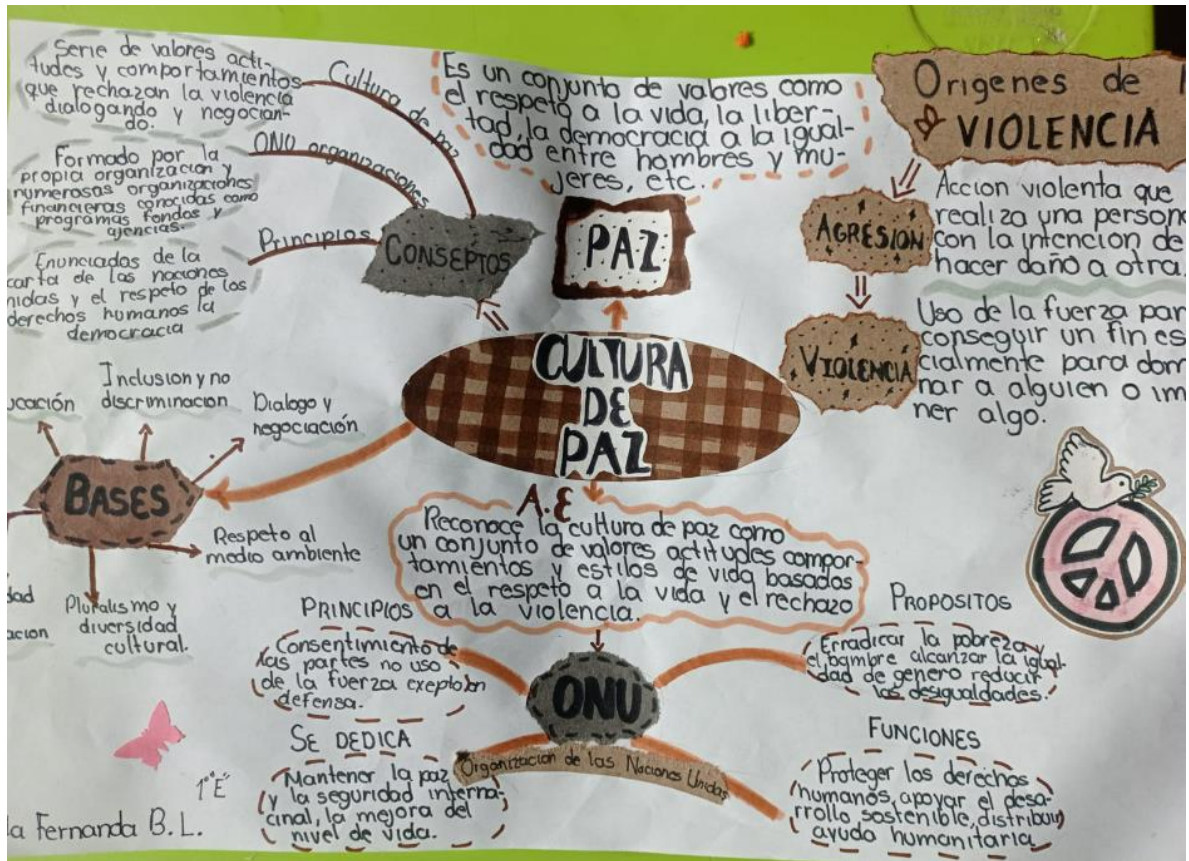 Serie de valores acti-
tudes y comportamientos
que rechazan la violencia
dialogando y negocian-
do.
Cultura de paz
Formado por la
propia organización y
numerosas organizaciones
financieras conocidas como
programas fondos y
agencias.
ONU organizaciones
Enunciados de la
carta de las naciones
nidas y el respeto de los
derechos humanos la
democracia
Principios
CONSEPTOS
Es un conjunto de valores como
el respeto a la vida, la liber-
tad, la democracia a la igual-
dad entre hombres y mu-
jeres, etc.
PAZ
Origenes de l
VIOLENCIA
AGRESIÓN
Accion violenta que
realiza una persona
con la intención de
hacer daño a otra.
VIOLENCIA
Uso de la fuerza par
conseguir un fin es
cialmente para dom
nar a alguien o im
ner algo.
CULTURA
DE
PAZ
ucación
Inclusion y no
discriminacion
Dialogo y
negociación
BASES
Respeto al
medio ambiente
Pluralismo y
diversidad
cultural.
dad
acion
A.E
Reconoce la cultura de paz como
un conjunto de valores actitudes compor-
tamientos y estilos de vida basados
en el respeto a la vida y el rechazo
a la violencia.
PRINCIPIOS
Consentimiento de
las partes no uso
de la fuerza exepto en
defensa.
PROPOSITOS
Erradicar la pobreza y
el hambre alcanzar la igual-
dad de genero reducir
las desigualdades.
ONU
Organizacion de las Naciones Unidas
SE DEDICA
Mantener la paz
y la seguridad interna-
cinal, la mejora del
nivel de vida.
FUNCIONES
Proteger los derechos
humanos, apoyar el desa-
rrollo sostenible, distribuir
ayuda humanitaria
1°"E"
a Fernanda B.L.